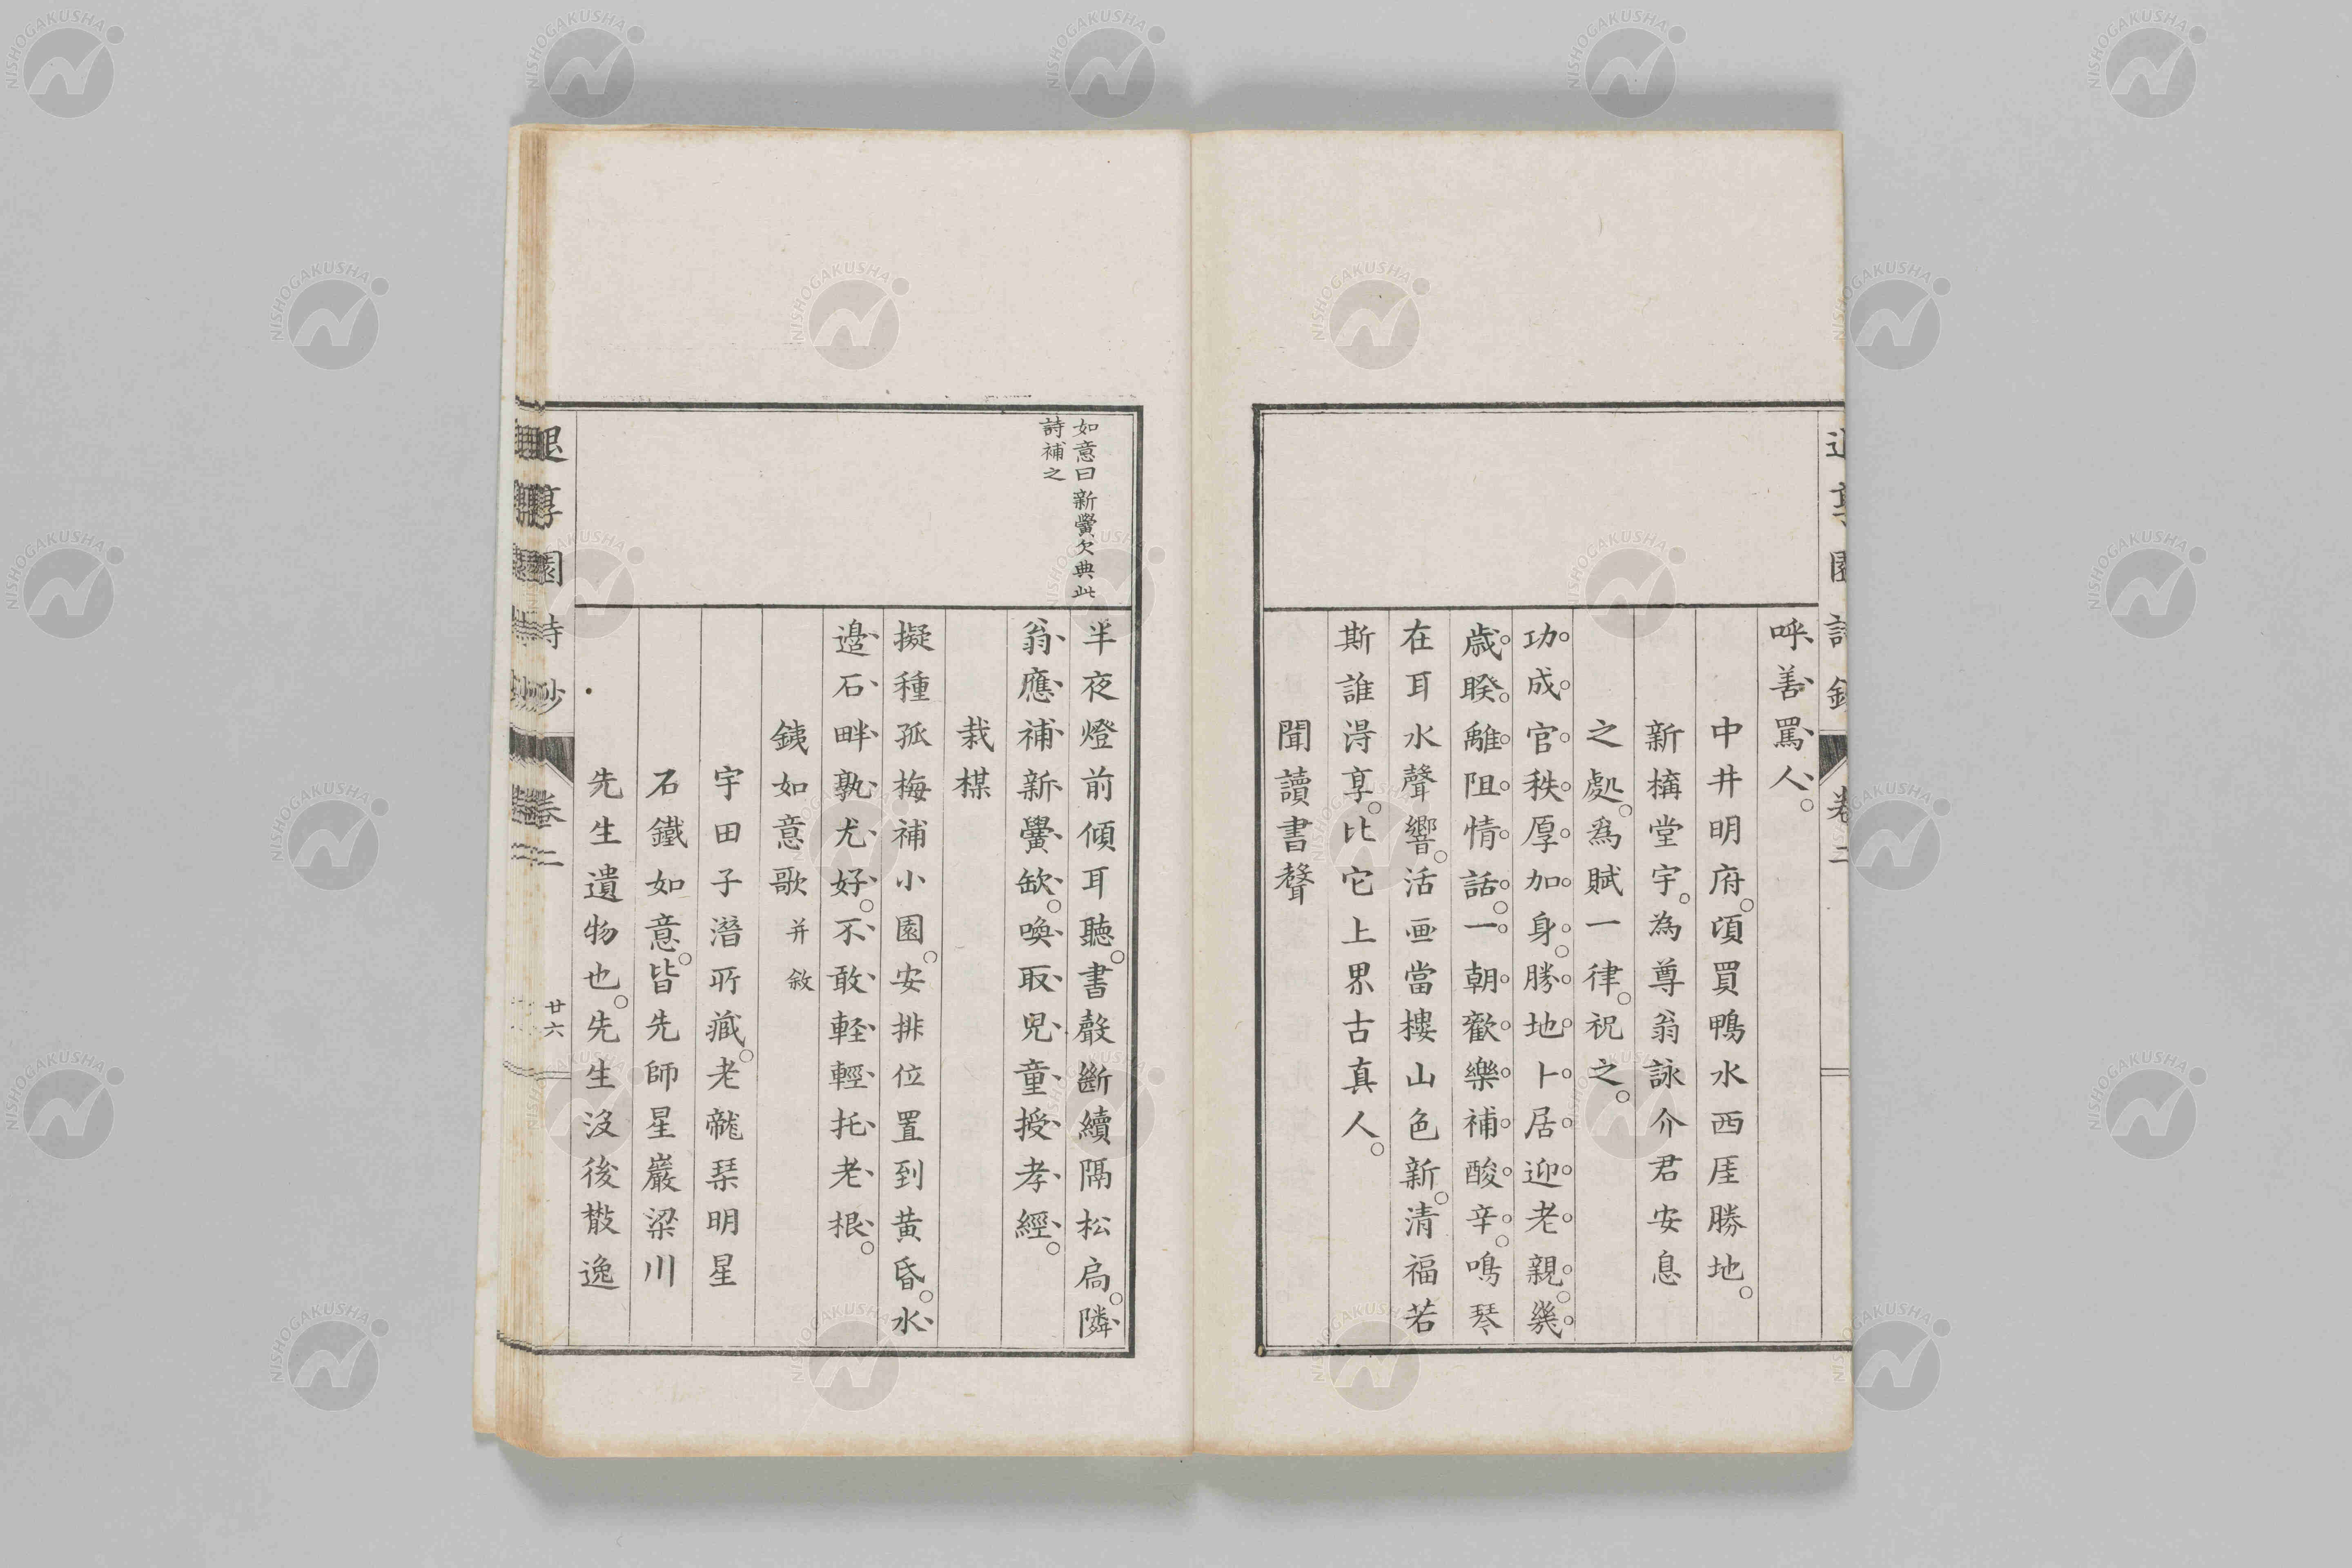 呼善罵人。
中井明府。頃買鴨水西厓勝地。
新構堂宇。為尊翁詠介君安息
之處。爲賦一律。祝之。
功成官秩厚加身。勝地卜居迎老親。幾
歳睽離阻情話。一朝歡樂補酸辛。鳴琴
在耳水聲響。活画當樓山色新。清福若
斯誰得享。比它上界古真人。
聞讀書聲
卷二
如意曰新黌欠典此
詩補之
半夜燈前傾耳聽。書聲斷續隔松扃。隣
翁應補新黌缺。喚取兒童授孝經。
栽楳
擬種孤梅補小園。安排位置到黄昏。水
邊石畔孰尤好。不敢輕輕托老根。
銕如意歌并敘
宇田子潛所藏。老龍琹明星
石鐵如意。皆先師星巖梁川
先生遺物也。先生沒後散逸
退享園詩鈔 卷二 廿六
NISHOGAKUSHA